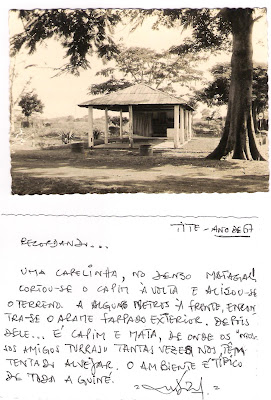 TITE - ANO DE 67
RECORDANDO...
UMA CAPELINHA, NO DENSO MATAGAL!
CORTOU-SE O CAPIM À VOLTA E ALISOU-SE
O TERRENO. A ALGUNS METROS À FRENTE, ENCON
TRA-SE O ARAME FARPADO EXTERIOR. DEPOIS
DELE... É CAPIM E MATA, DE ONDE OS
SOS AMIGOS TURRAS" TANTAS VEZES NOS TÊM
TENTADO ALVEJAR. O AMBIENTE É TÍPICO
DE TODA A GUINÉ.